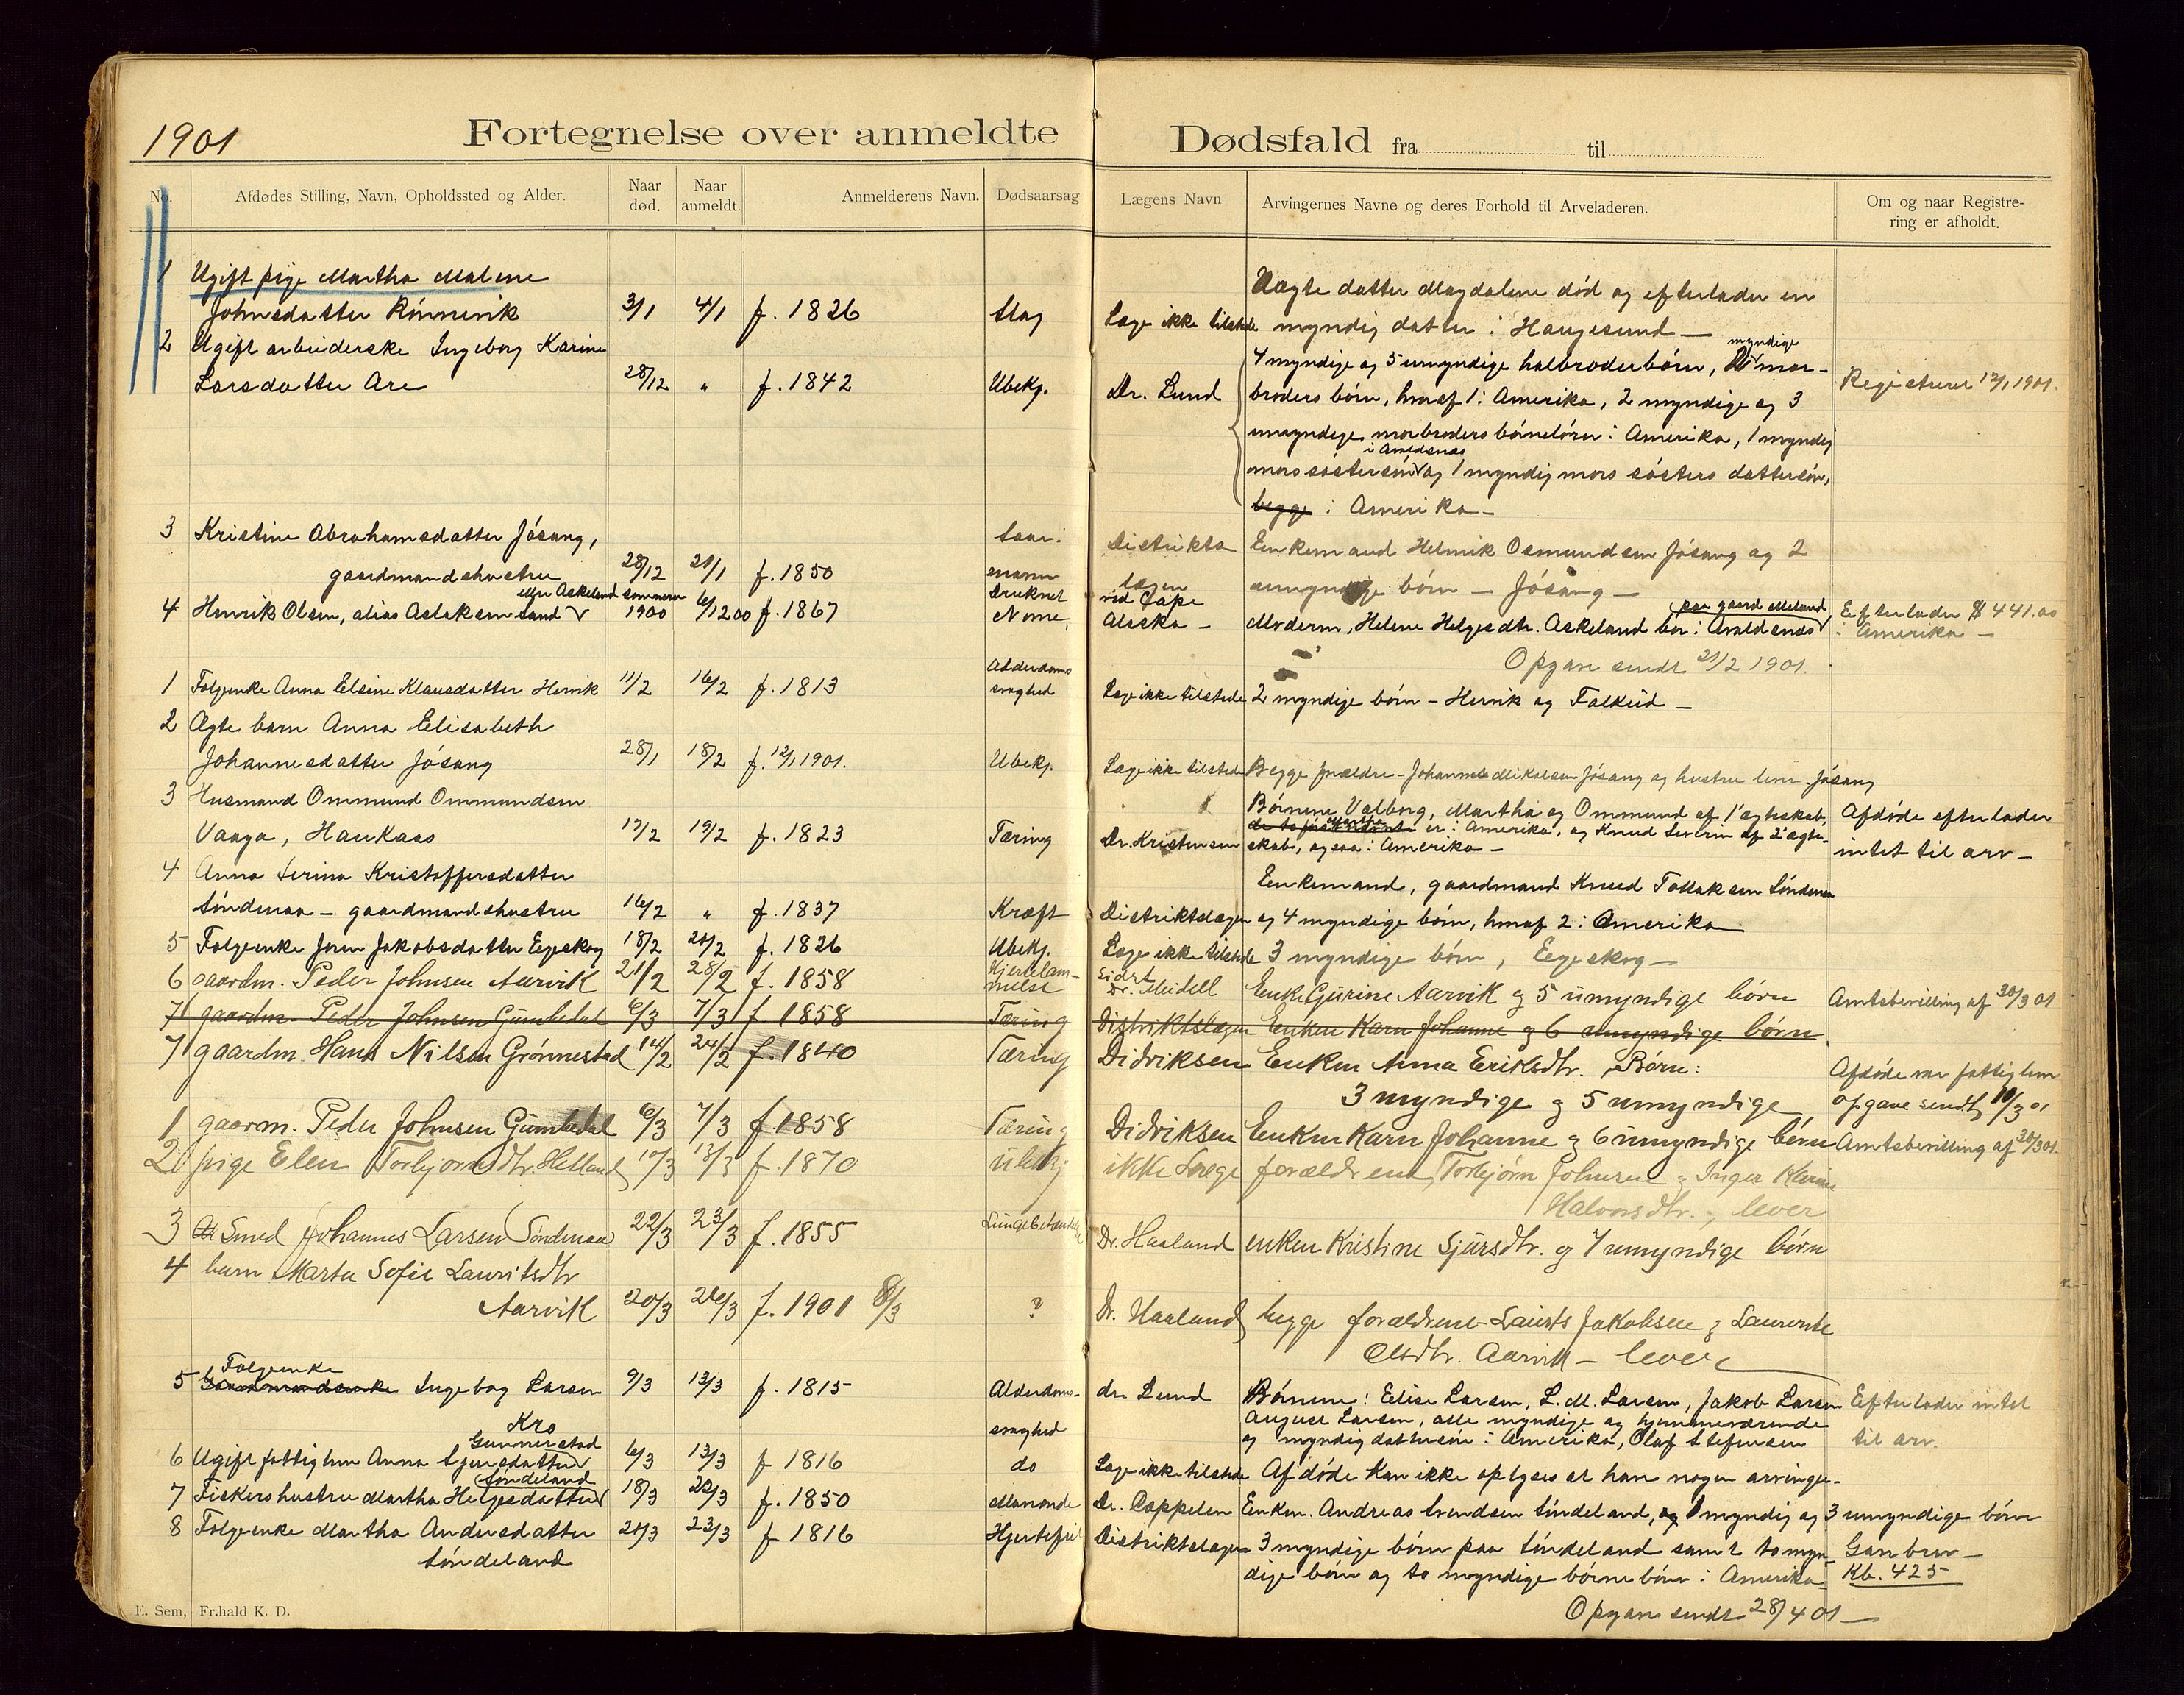 1901
Fortegnelse over anmeldte Dødsfald fra til
No.
Afdødes Stilling, Navn, Opholdssted og Alder.
Naar død.
Naar anmeldt.
Anmelderens Navn.
Dødsaarsag
Lægens Navn
Arvingernes Navne og deres Forhold til Arveladeren.
Om og naar Registrering er afholdt.
1 Ugift pige Martha Malene
Uægte datter Magdalene død og efterlader en
Johnsdatter Rönnevik 3/1 4/1 f. 1826 Slag Læge ikke tilstede myndig datter i Haugesund —
2 Ugift arbeiderske Ingeborg Karine
myndige
4 myndige og 5 umyndige halbroderbörn, mor-
Larsdatter Are 28/12 " f. 1842 Ubekj. Dr. Lund broders börn, hvoraf 1 i Amerika, 2 myndige og 3 Registreret 12/1 1901.
umyndige morbroders börnebörn i Amerika, 1 myndig
i Avaldsnæs
mors sösters sön og 1 myndig mors sösters dattersön,
begge i Amerika —
3 Kristine Abrahamsdatter Jösang,
Distrikts Enkemand Helmik Osmundsen Jösang og 2
gaardmandshustru 28/12 21/1 f. 1850 lægen umyndige börn — Jösang —
eller Askeland sommeren Druknet ved Cape paa gaard Meland
4 Henrik Olsen, alias Aslaksen Sand 1900 6/12 00 f. 1867 Nome, Alaska — Moderen, Helene Helgesdtr. Askeland bor i Avaldsnæs Efterlader $ 441.00
i Amerika —
Opgave sendt 21/2 1901.
Alderdoms
1 Folgeenke Anna Elsine Klausdatter Hervik 11/2 16/2 f. 1813 svaghed Læge ikke tilstede 2 myndige börn — Hervik og Falkeid —
2 Ægte barn Anna Elisabeth
Johannesdatter Jösang 28/1 18/2 f. 12/1 1901. Ubekj. Læge ikke tilstede Begge forældre — Johannes Mikalsen Jösang og hustru lever Jösang
3 Husmand Ommund Ommundsen
Börnene Valborg, Martha og Ommund af 1' ægteskab, Afdöde efterlader
Vaaga, Haukaas 17/2 19/2 f. 1823 Tæring Dr. Kristensen er i Amerika, og Knud Severin af 2' ægte-
skab, ogsaa i Amerika — intet til arv —
4 Anna Serina Kristoffersdatter
Enkemand, gaardmand Knud Tollaksen Söndenaa
Söndenaa — gaardmandshustru 16/2 " f. 1837 Kræft Distriktslægen og 4 myndige börn, hvoraf 2 i Amerika
5 Folgeenke Joren Jakobsdatter Eegeskog 18/2 20/2 f. 1826 Ubekj. Læge ikke tilstede 3 myndige börn, Eegeskog —
6 gaardm. Peder Johnsen Aarvik 21/2 28/2 f. 1858 Hjertelam-
melse Meidell Enke Gurine Aarvik og 5 umyndige børn Amtsbevilling af 30/3 01
7 gaardm. Peder Johnsen Gumbedal 6/3 7/3 f 1858 Tæring Distriktslægen Enken Karn Johanne og 6 umyndige børn
7 gaardm. Hans Nilsen Grønnestad 14/2 24/2 f. 1840 Tæring Didriksen Enken Anna Eriksdtr. Børn: Afdøde var fattiglem
3 myndige og 5 umyndige opgave sendt 10/3 01
1 gaardm. Peder Johnsen Gumbedal 6/3 7/3 f 1858 Tæring Didriksen Enken Karn Johanne og 6 umyndige børn Amtsbevilling af 30/3 01.
2 pige Elen Torbjørnsdtr. Hetland 10/3 13/3 f. 1870 ubekj ikke Læge forældrene, Torbjørn Johnsen og Inger Karine
Halvorsdtr., lever
3 Smed Johannes Larsen Søndenaa 22/3 23/3 f. 1855 Lungebetændelse Dr. Haaland enken Kristine Sjursdtr. og 7 umyndige børn
4 barn Marta Sofie Lauritsdtr
Aarvik 20/3 26/3 f. 1901 8/3 ? Dr. Haaland begge forældrene Laurits Jakobsen og Laurentse
Olsdtr. Aarvik — lever
Folgeenke
5 Gaardmandsenke Ingeborg Larsen 9/3 13/3 f. 1815 Alderdoms-
svaghed dr Lund Börnene: Elise Larsen, L. M. Larsen, Jakob Larsen Efterlader intet
August Larsen, alle myndige og hjemmeværende
og myndig dattersön i Amerika, Olaf Stefensen til arv.
Kro
Gunnerstad
6 Ugift fattiglem Anna Sjursdatter 6/3 13/3 f 1816 do Læge ikke tilstede Afdöde kan ikke oplyses at have nogen arvinger.
Söndeland
7 Fiskershustru Martha Helgesdatter 18/3 22/3 f. 1850 Dr. Cappelen Enkem. Andreas Svendsen Söndeland, 1 myndig og 3 umyndige börn
8 Folgeenke Martha Andersdatter 20/3 23/3 f 1816 Hjertefeil Distriktslægen 3 myndige börn paa Söndeland samt to myn- Gavebrev —
Söndeland
dige börn og to myndige börnebörn i Amerika Kb. 425
Opgave sendt 28/4 01 —
E. Sem, Fr.hald K. D.